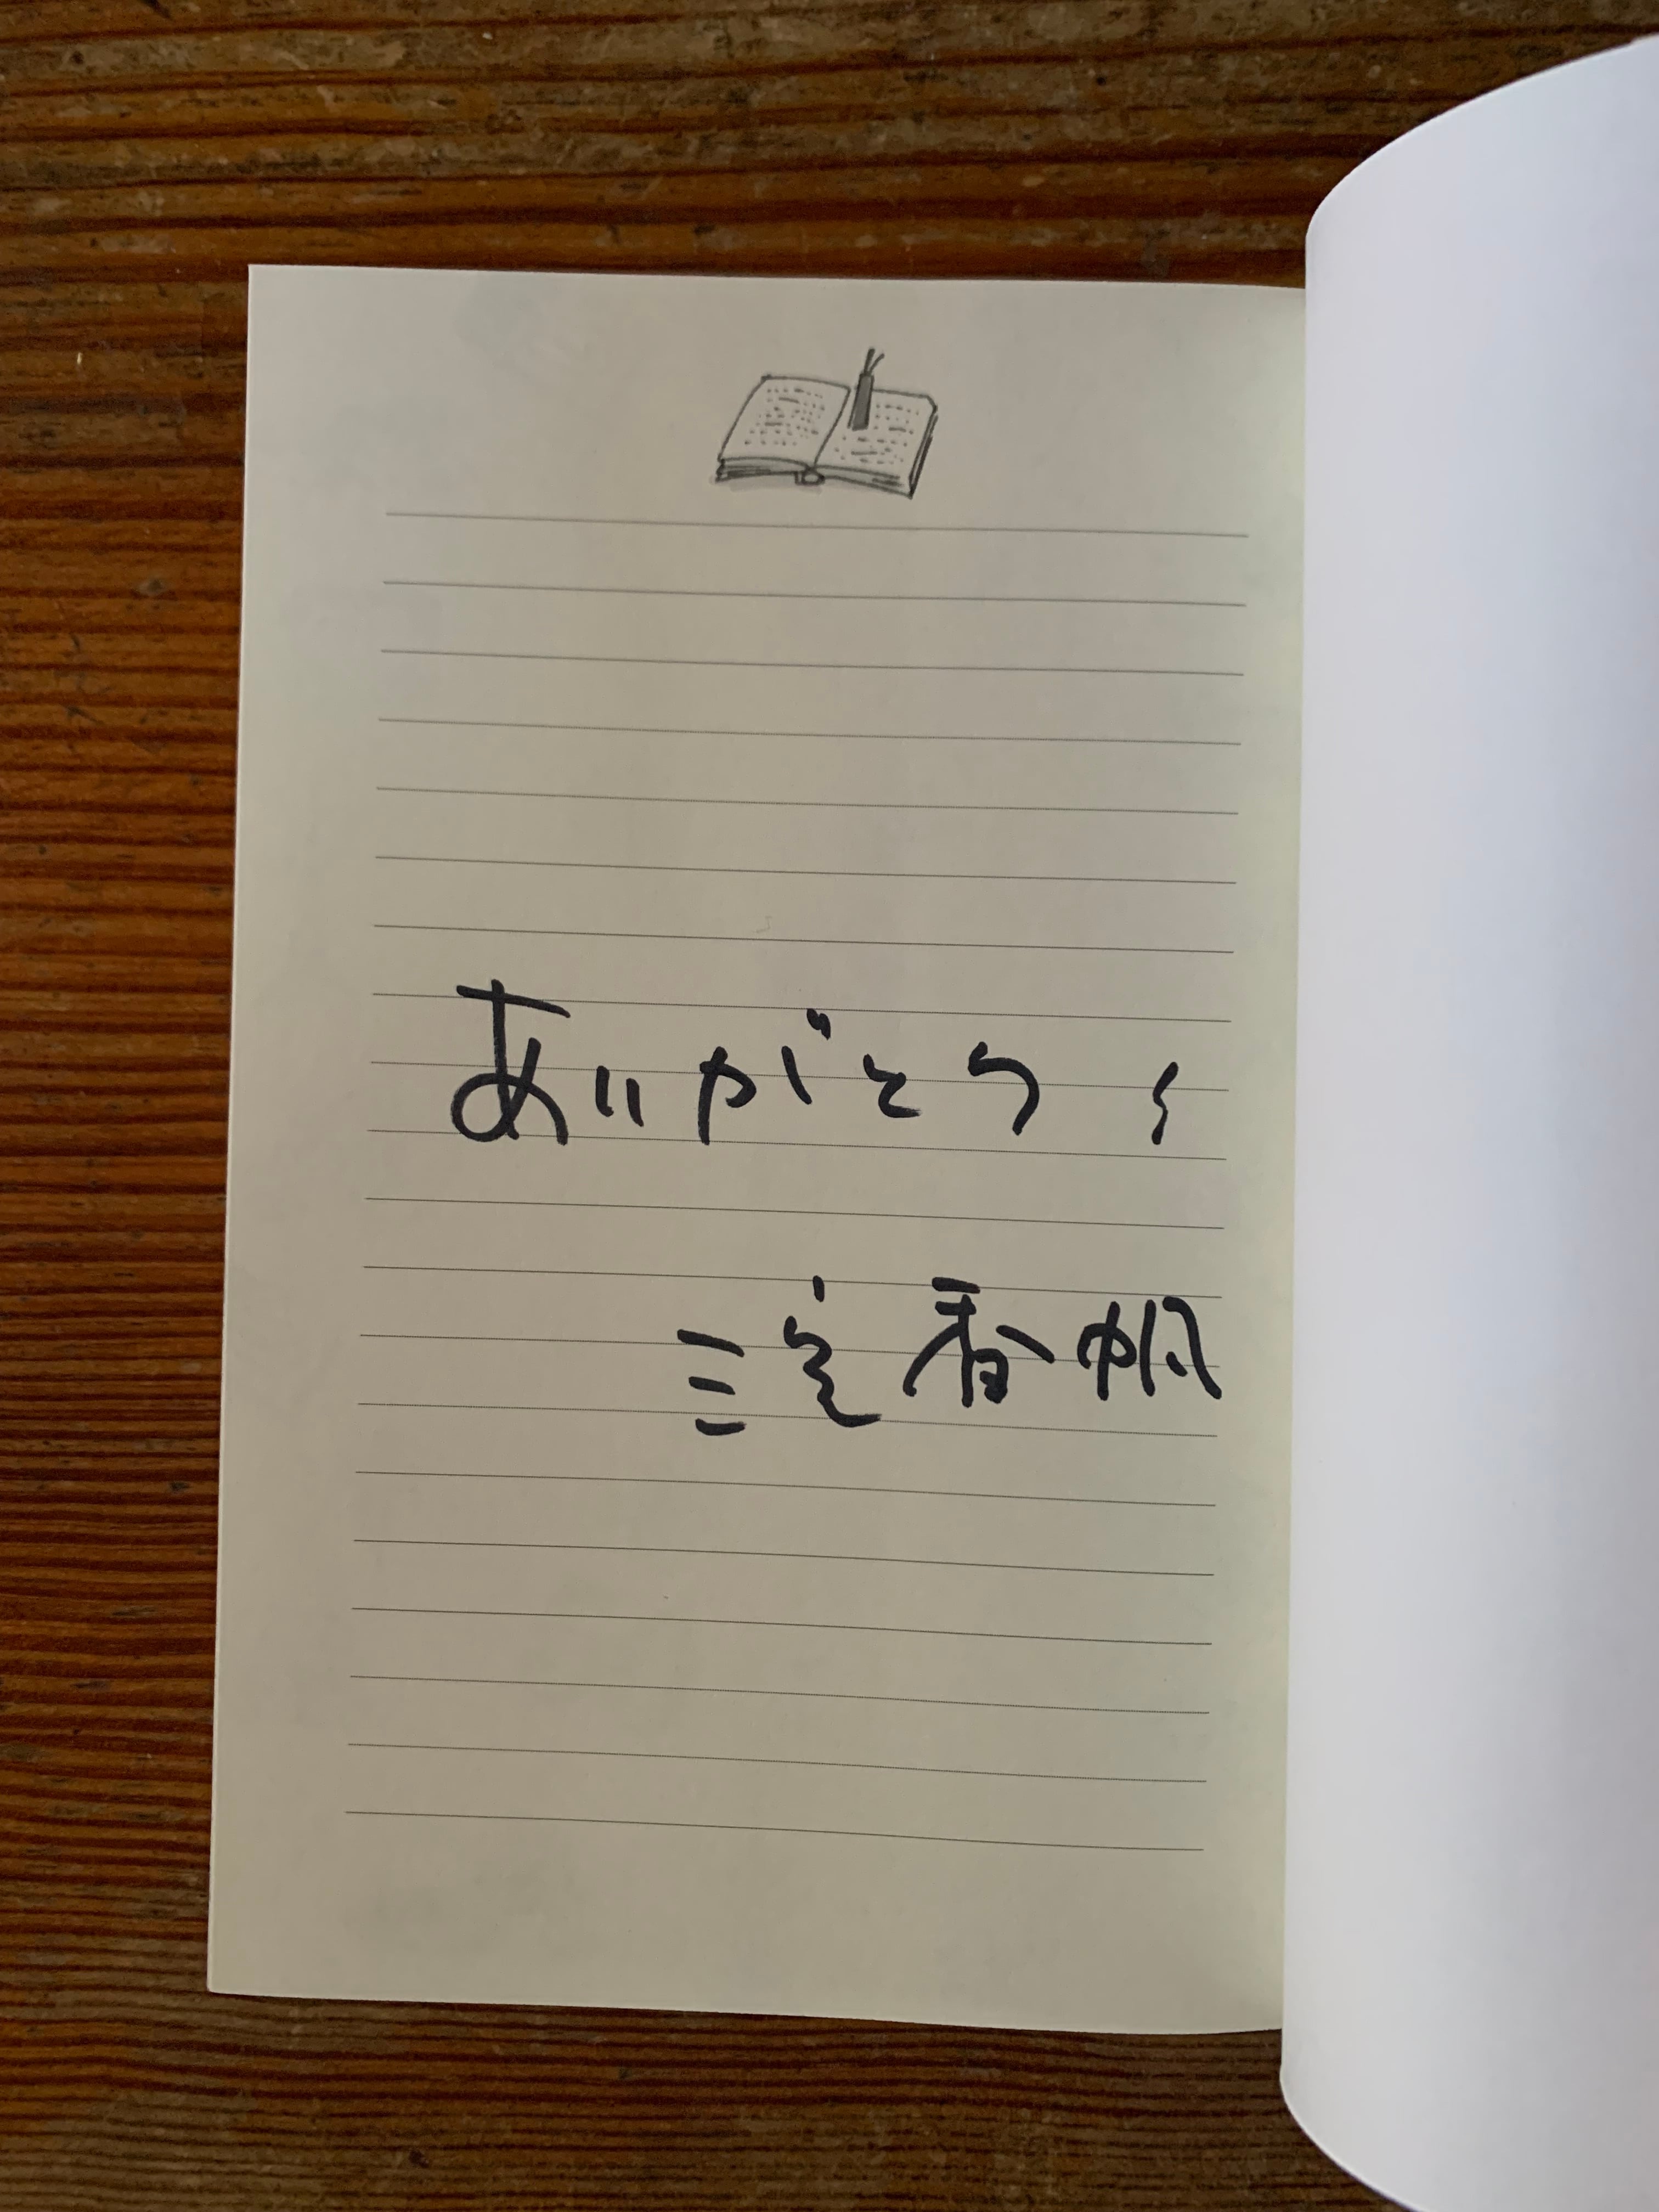 ありがとう！
三宅香帆